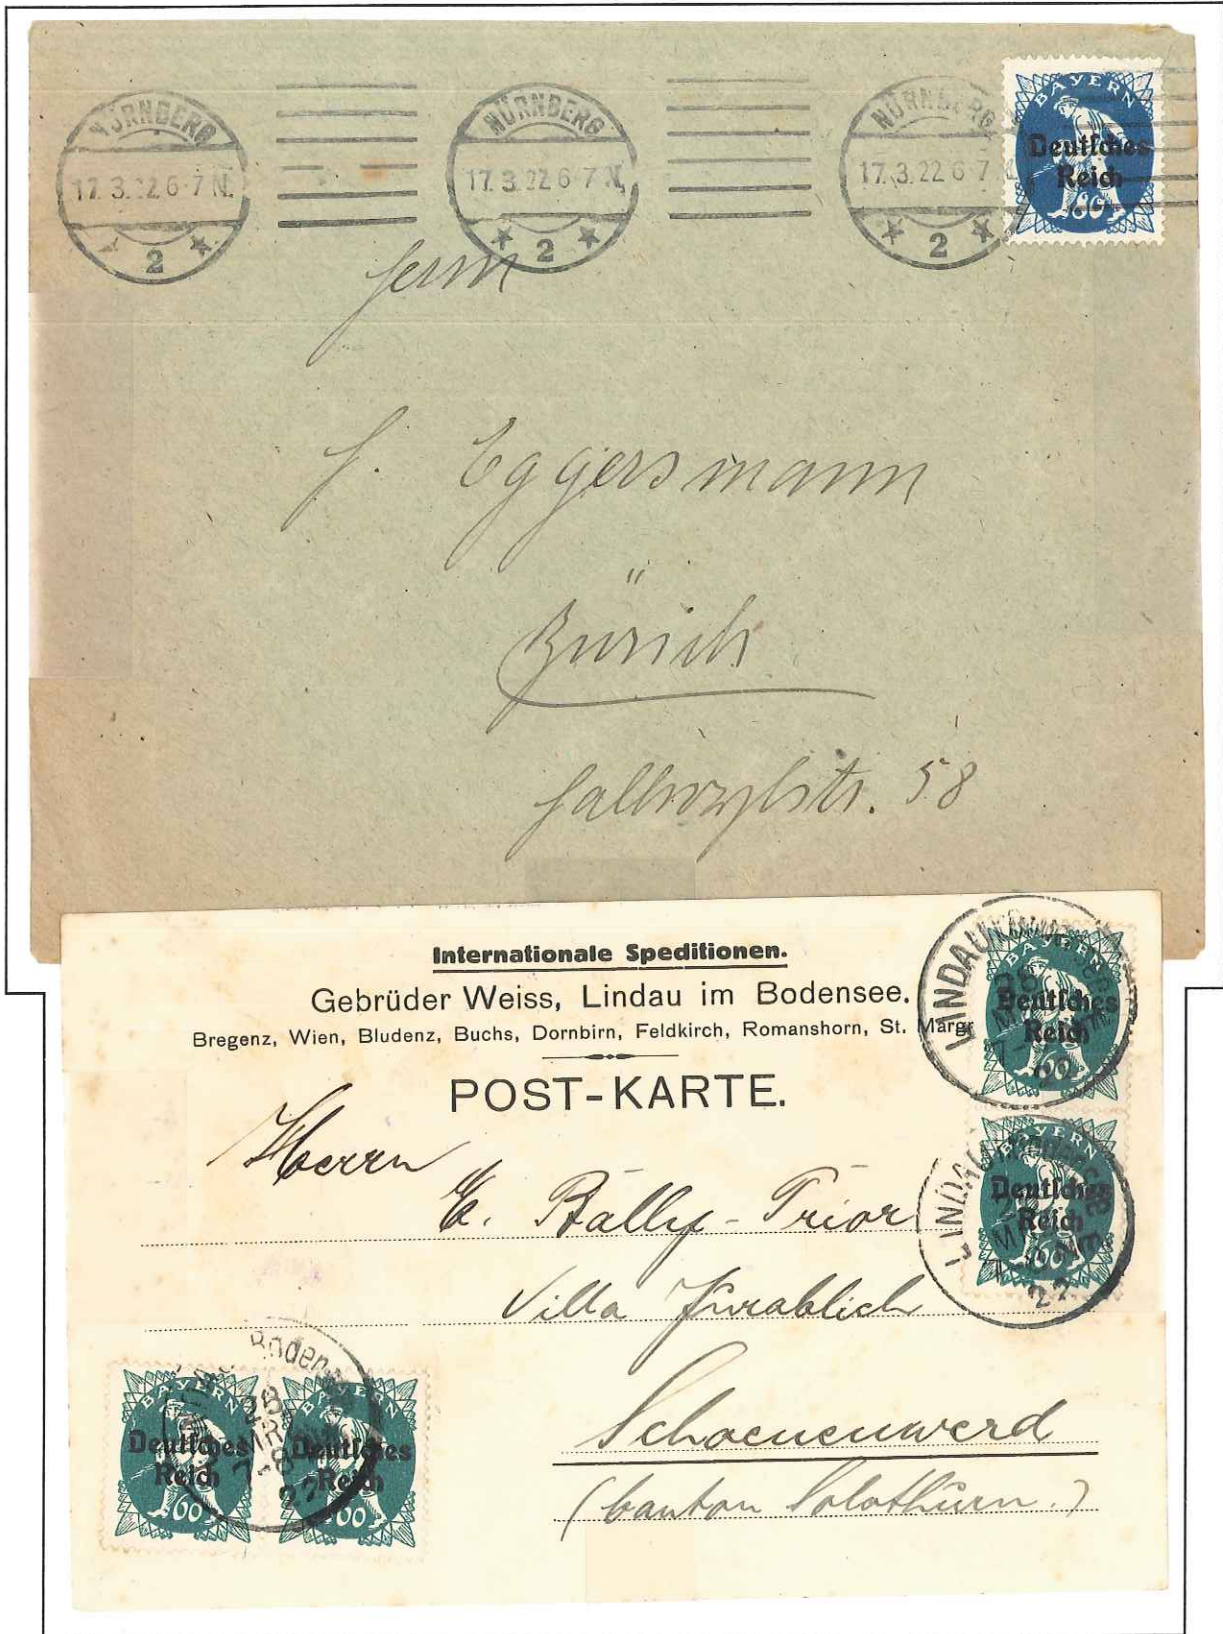 NÜRNBERG
17.3.22 6-7 N.
* 2 *
NÜRNBERG
17.3.22 6-7 N.
* 2 *
NÜRNBERG
17.3.22 6-7
* 2 *
BAYERN
Deutsches
Reich
80
Herrn
Eggersmann
Zürich
Hallwylstr. 58
Internationale Speditionen.
Gebrüder Weiss, Lindau im Bodensee.
Bregenz, Wien, Bludenz, Buchs, Dornbirn, Feldkirch, Romanshorn, St. Margr
POST-KARTE.
LINDAU
BAYERN
Deutsches
Reich
60
22
Herrn
E. Bally-Prior
LINDAU
BAYERN
Deutsches
Reich
60
22
Villa
Schoenenwerd
(Canton Solothurn.)
Boden
28
7-8
22
BAYERN
Deutsches
Reich
60
BAYERN
Deutsches
Reich
60